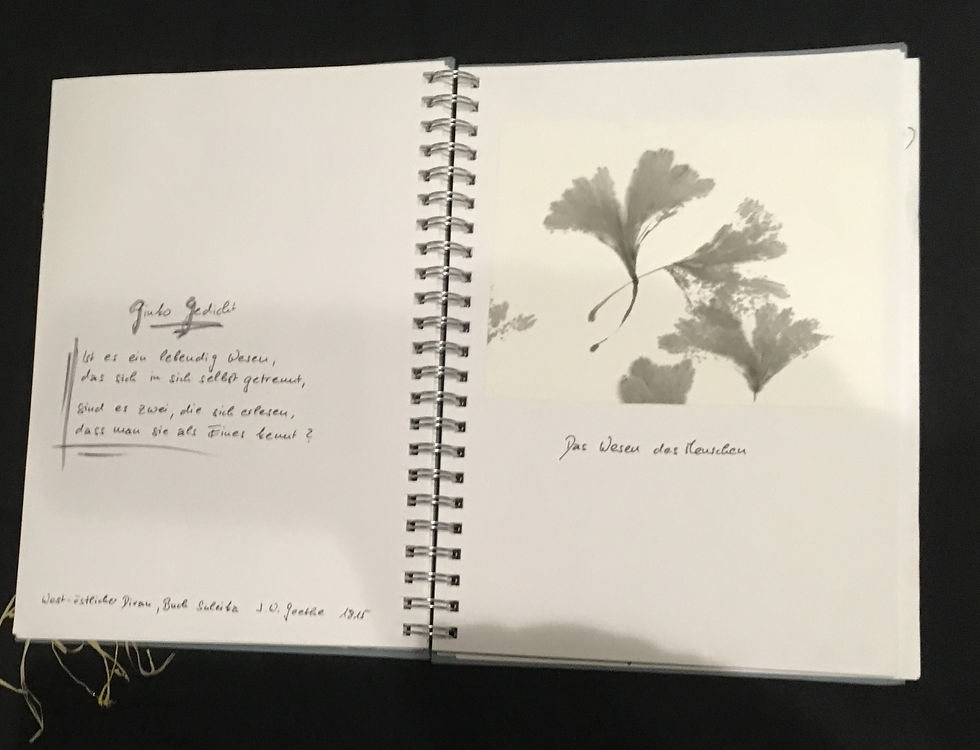 Ginko Gedicht
Ist es ein lebendig Wesen,
das sich in sich selbst getrennt,
sind es zwei, die sich erlesen,
dass man sie als Eines kennt?
West-östlicher Divan, Buch Suleika J. W. Goethe 1815
Das Wesen des Menschen